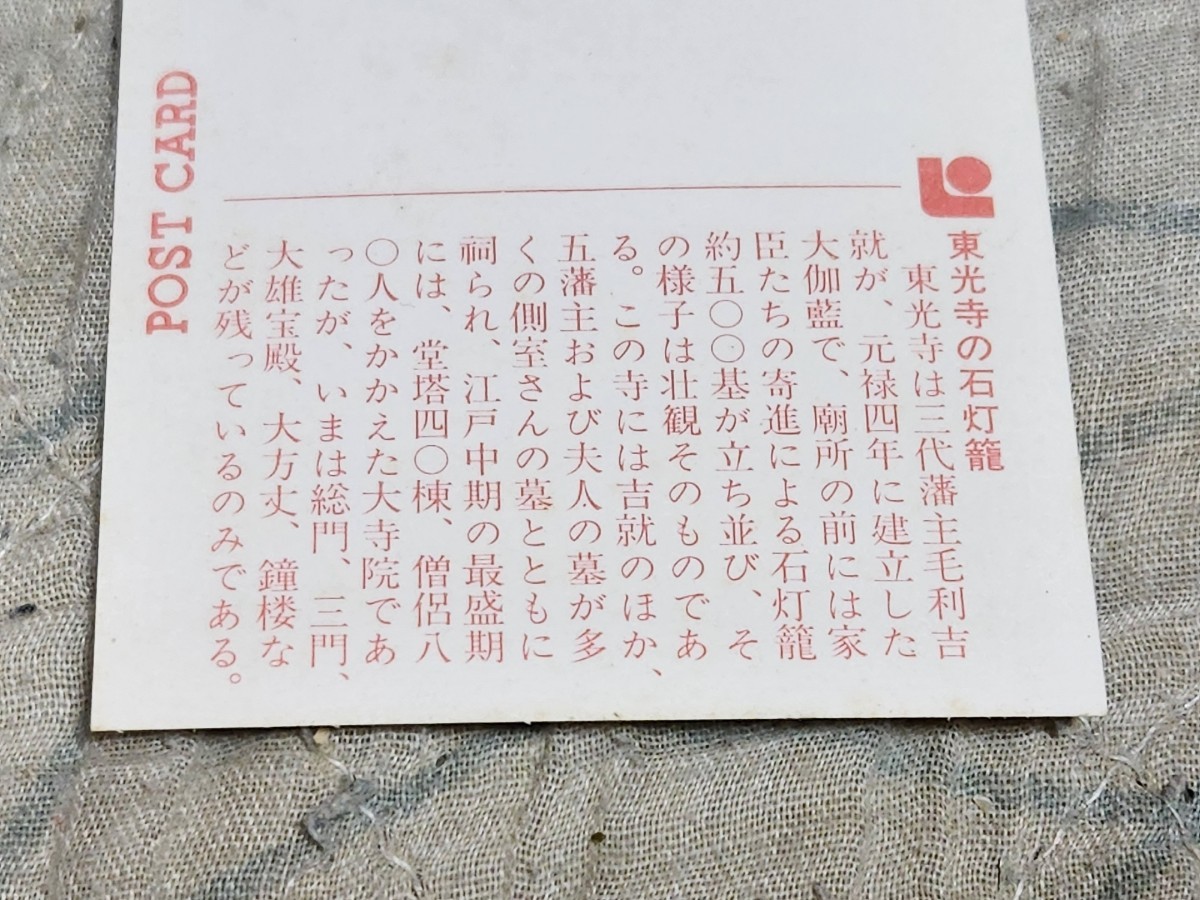 POST CARD
東光寺の石灯籠
東光寺は三代藩主毛利吉
就が、元禄四年に建立した
大伽藍で、廟所の前には家
臣たちの寄進による石灯籠
約五〇〇基が立ち並び、そ
の様子は壮観そのものであ
る。この寺には吉就のほか、
五藩主および夫人の墓が多
くの側室さんの墓とともに
祠られ、江戸中期の最盛期
には、堂塔四〇棟、僧侶八
〇人をかかえた大寺院であ
ったが、いまは総門、三門、
大雄宝殿、大方丈、鐘楼な
どが残っているのみである。